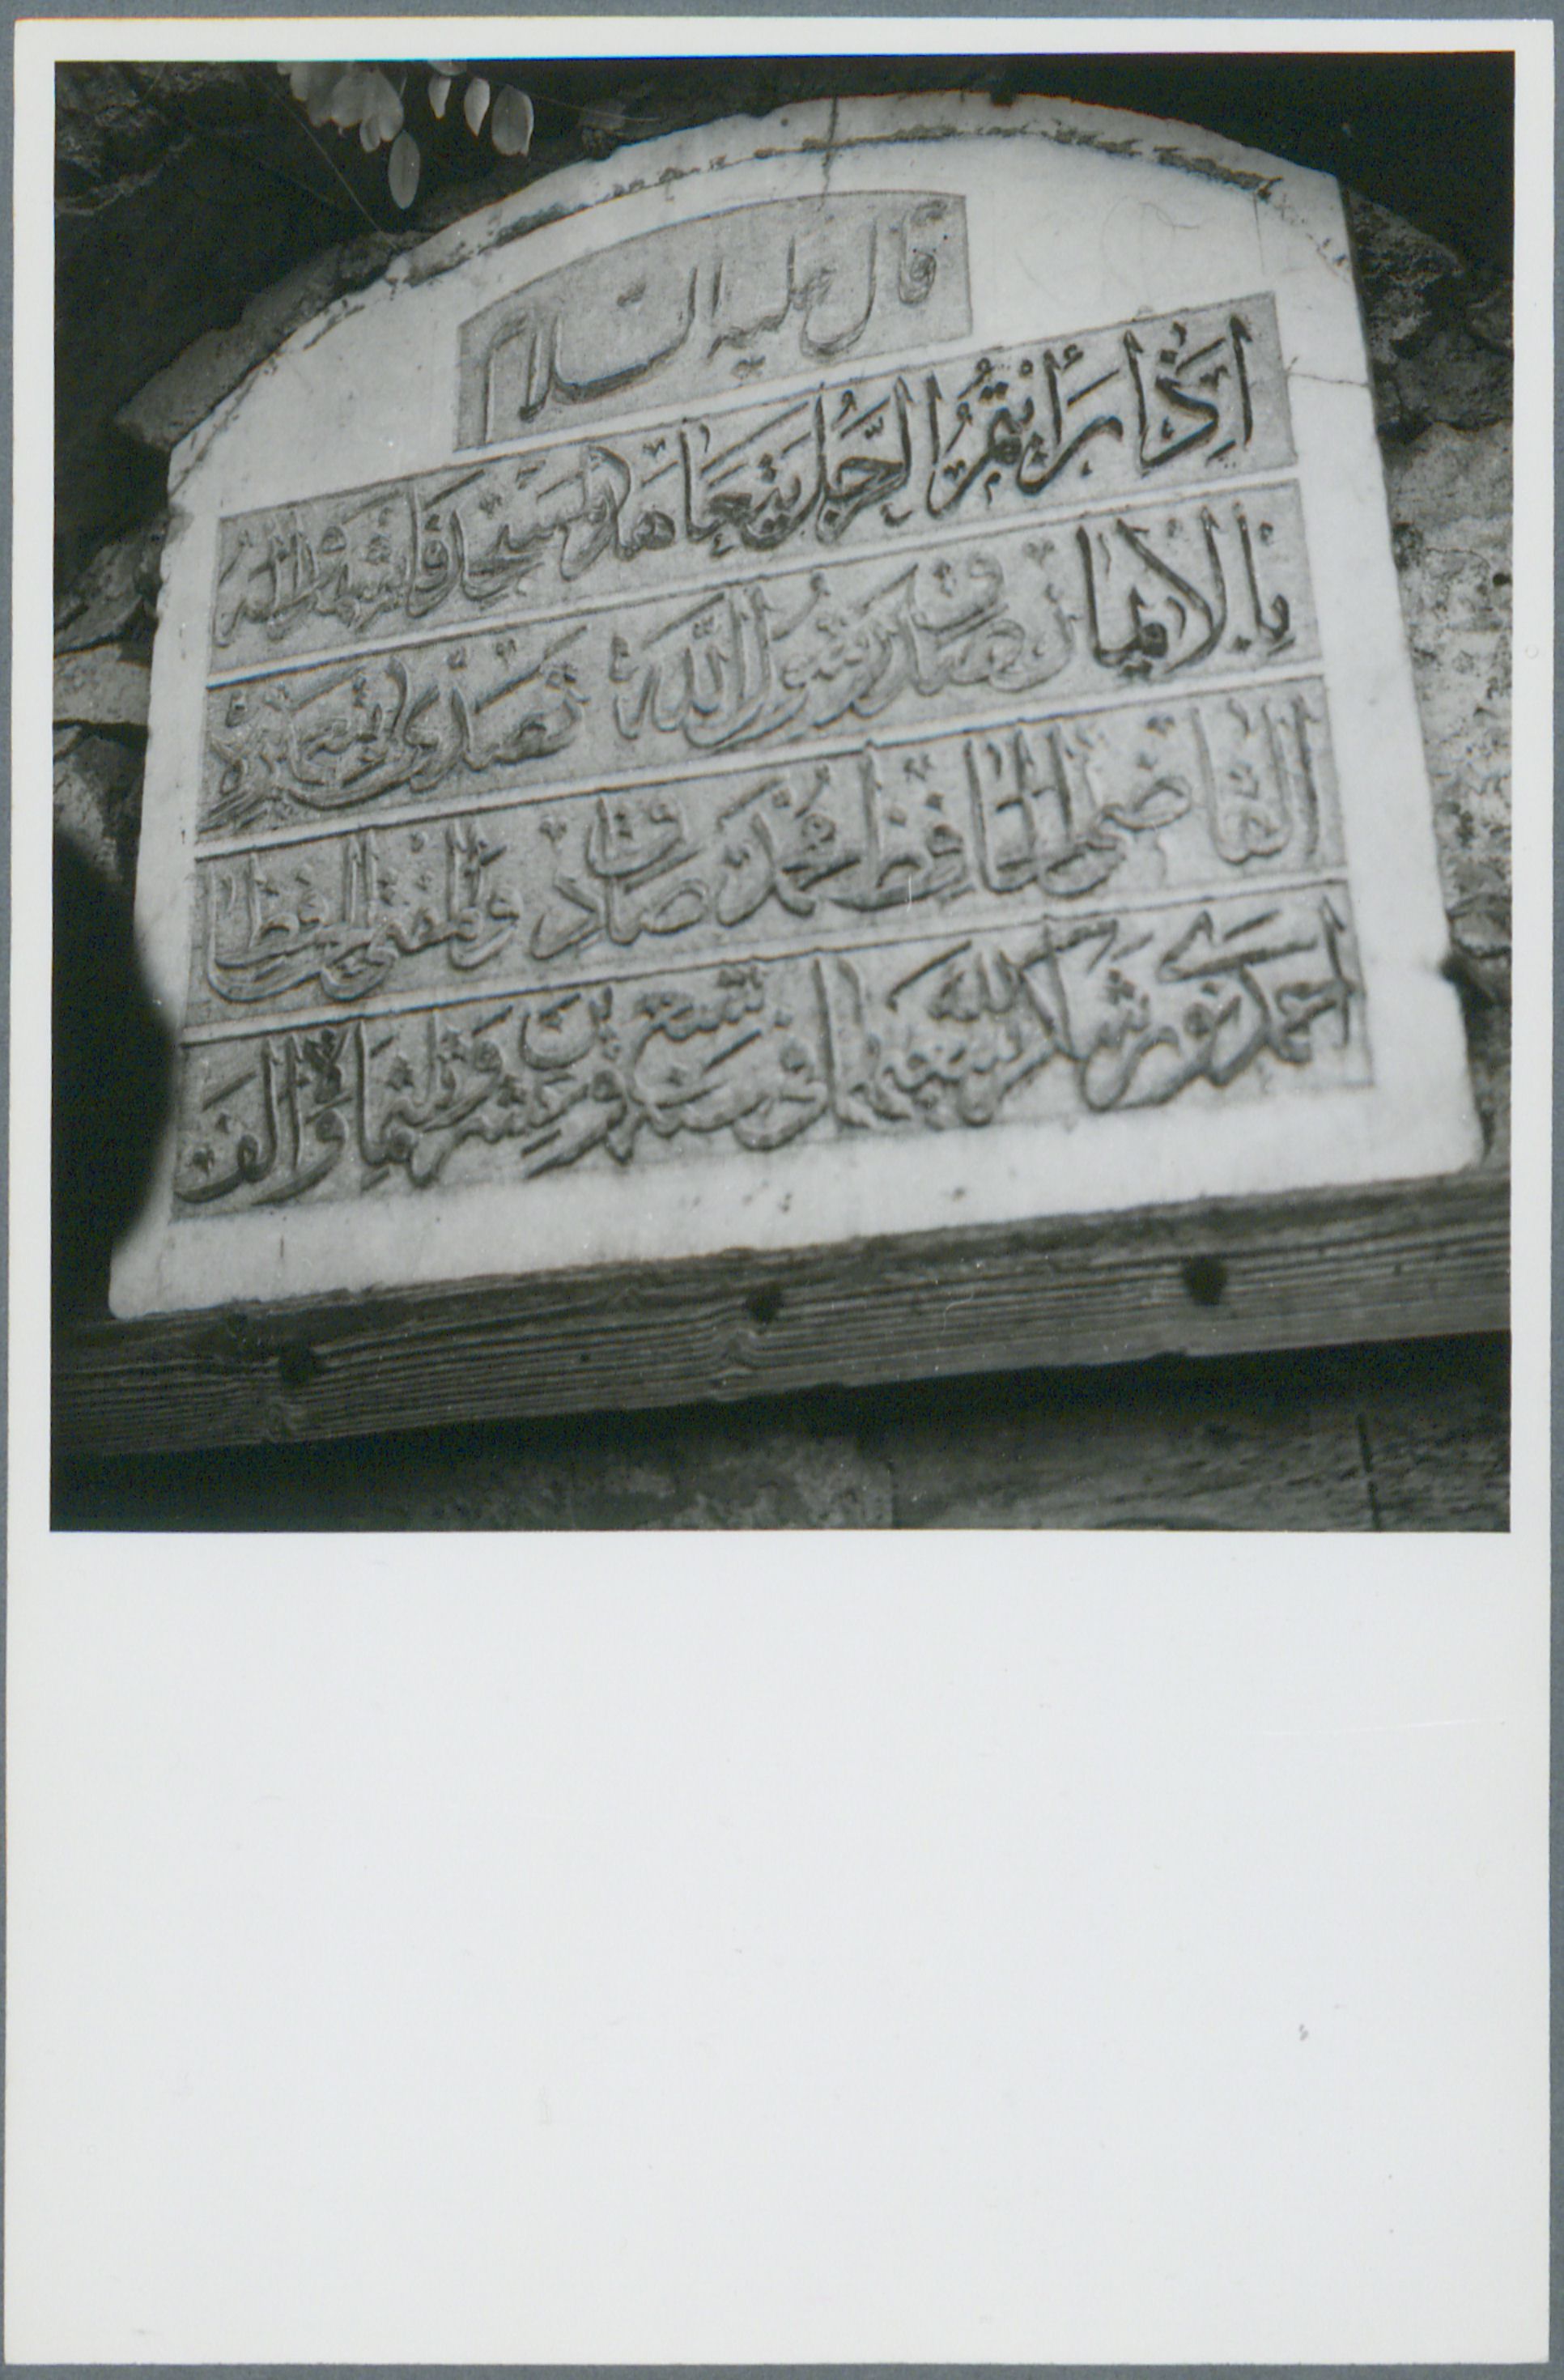 قال عليه السلام
اِذَا رَأَيْتُمُ الرَّجُلَ يَتَعَاهَدُ الْمَسْجِدَ فَاشْهَدُوا لَهُ
بِالْاِيمَانِ صدق رسول الله تصدى لتعميره
القاضى الحافظ محمد صادق والمفتى الحافظ
احمد نورى شكر الله سعيهما فى سنة تسع وعشرين وثلثمائة والف